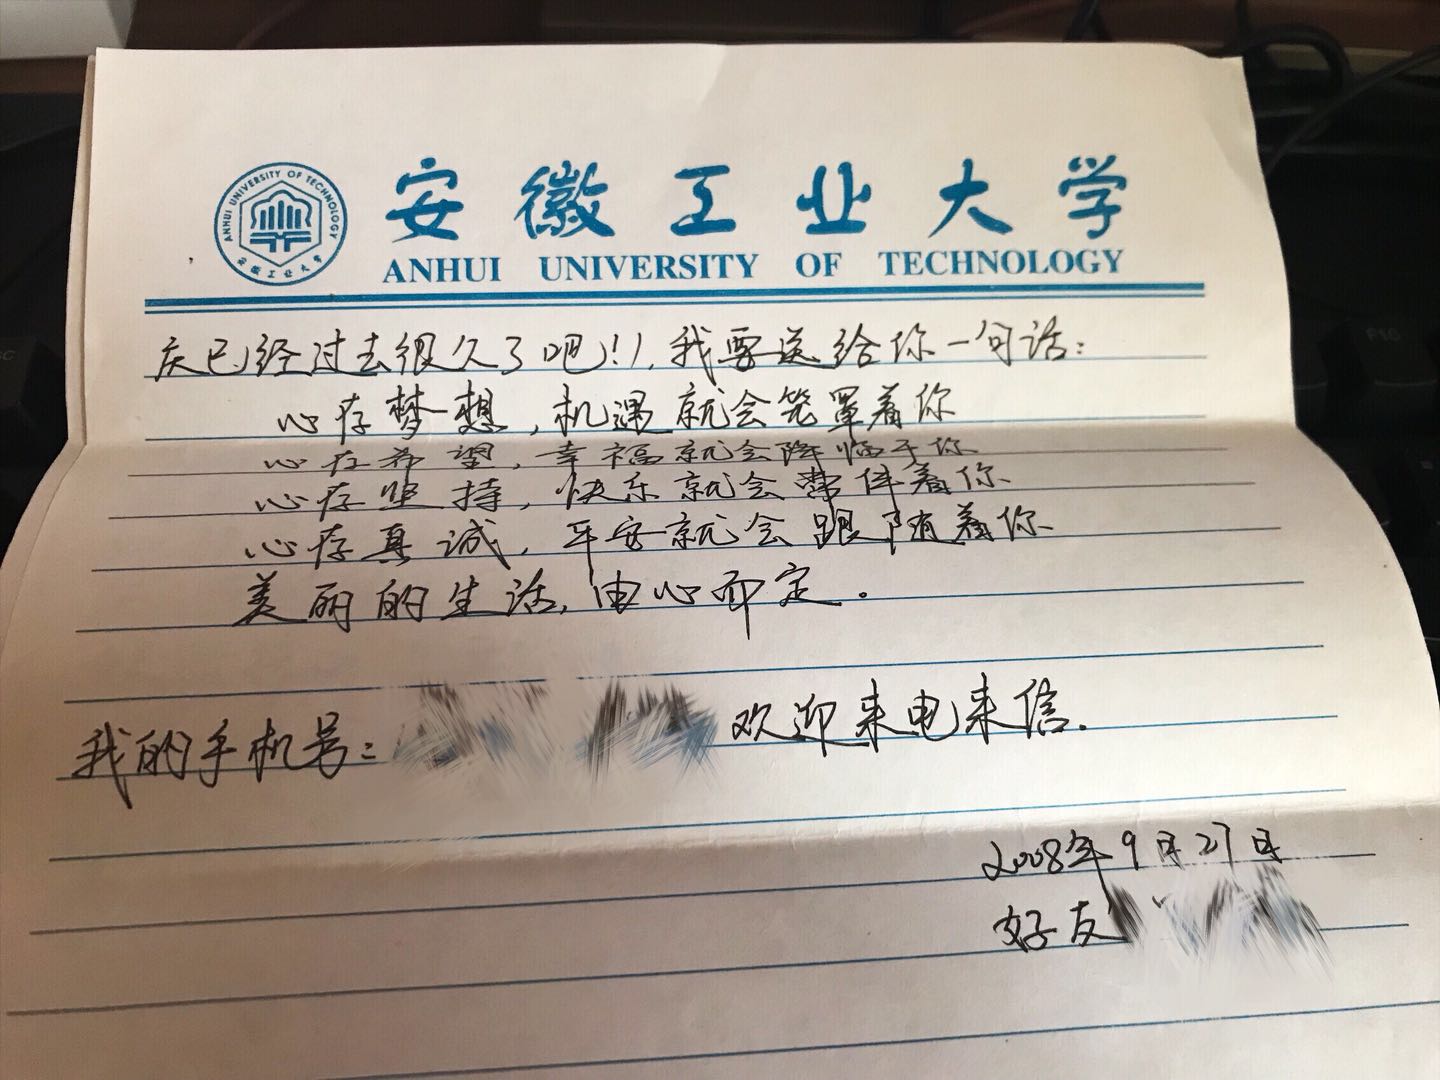 ANHUI UNIVERSITY OF TECHNOLOGY
安徽工业大学
安徽工业大学
ANHUI UNIVERSITY OF TECHNOLOGY
庆已经过去很久了吧!!,我要送给你一句话:
心存梦想,机遇就会笼罩着你
心存希望,幸福就会降临于你
心存坚持,快乐就会常伴着你
心存真诚,平安就会跟随着你
美丽的生活,由心而定.
我的手机号: 欢迎来电来信.
2008年9月27日
好友